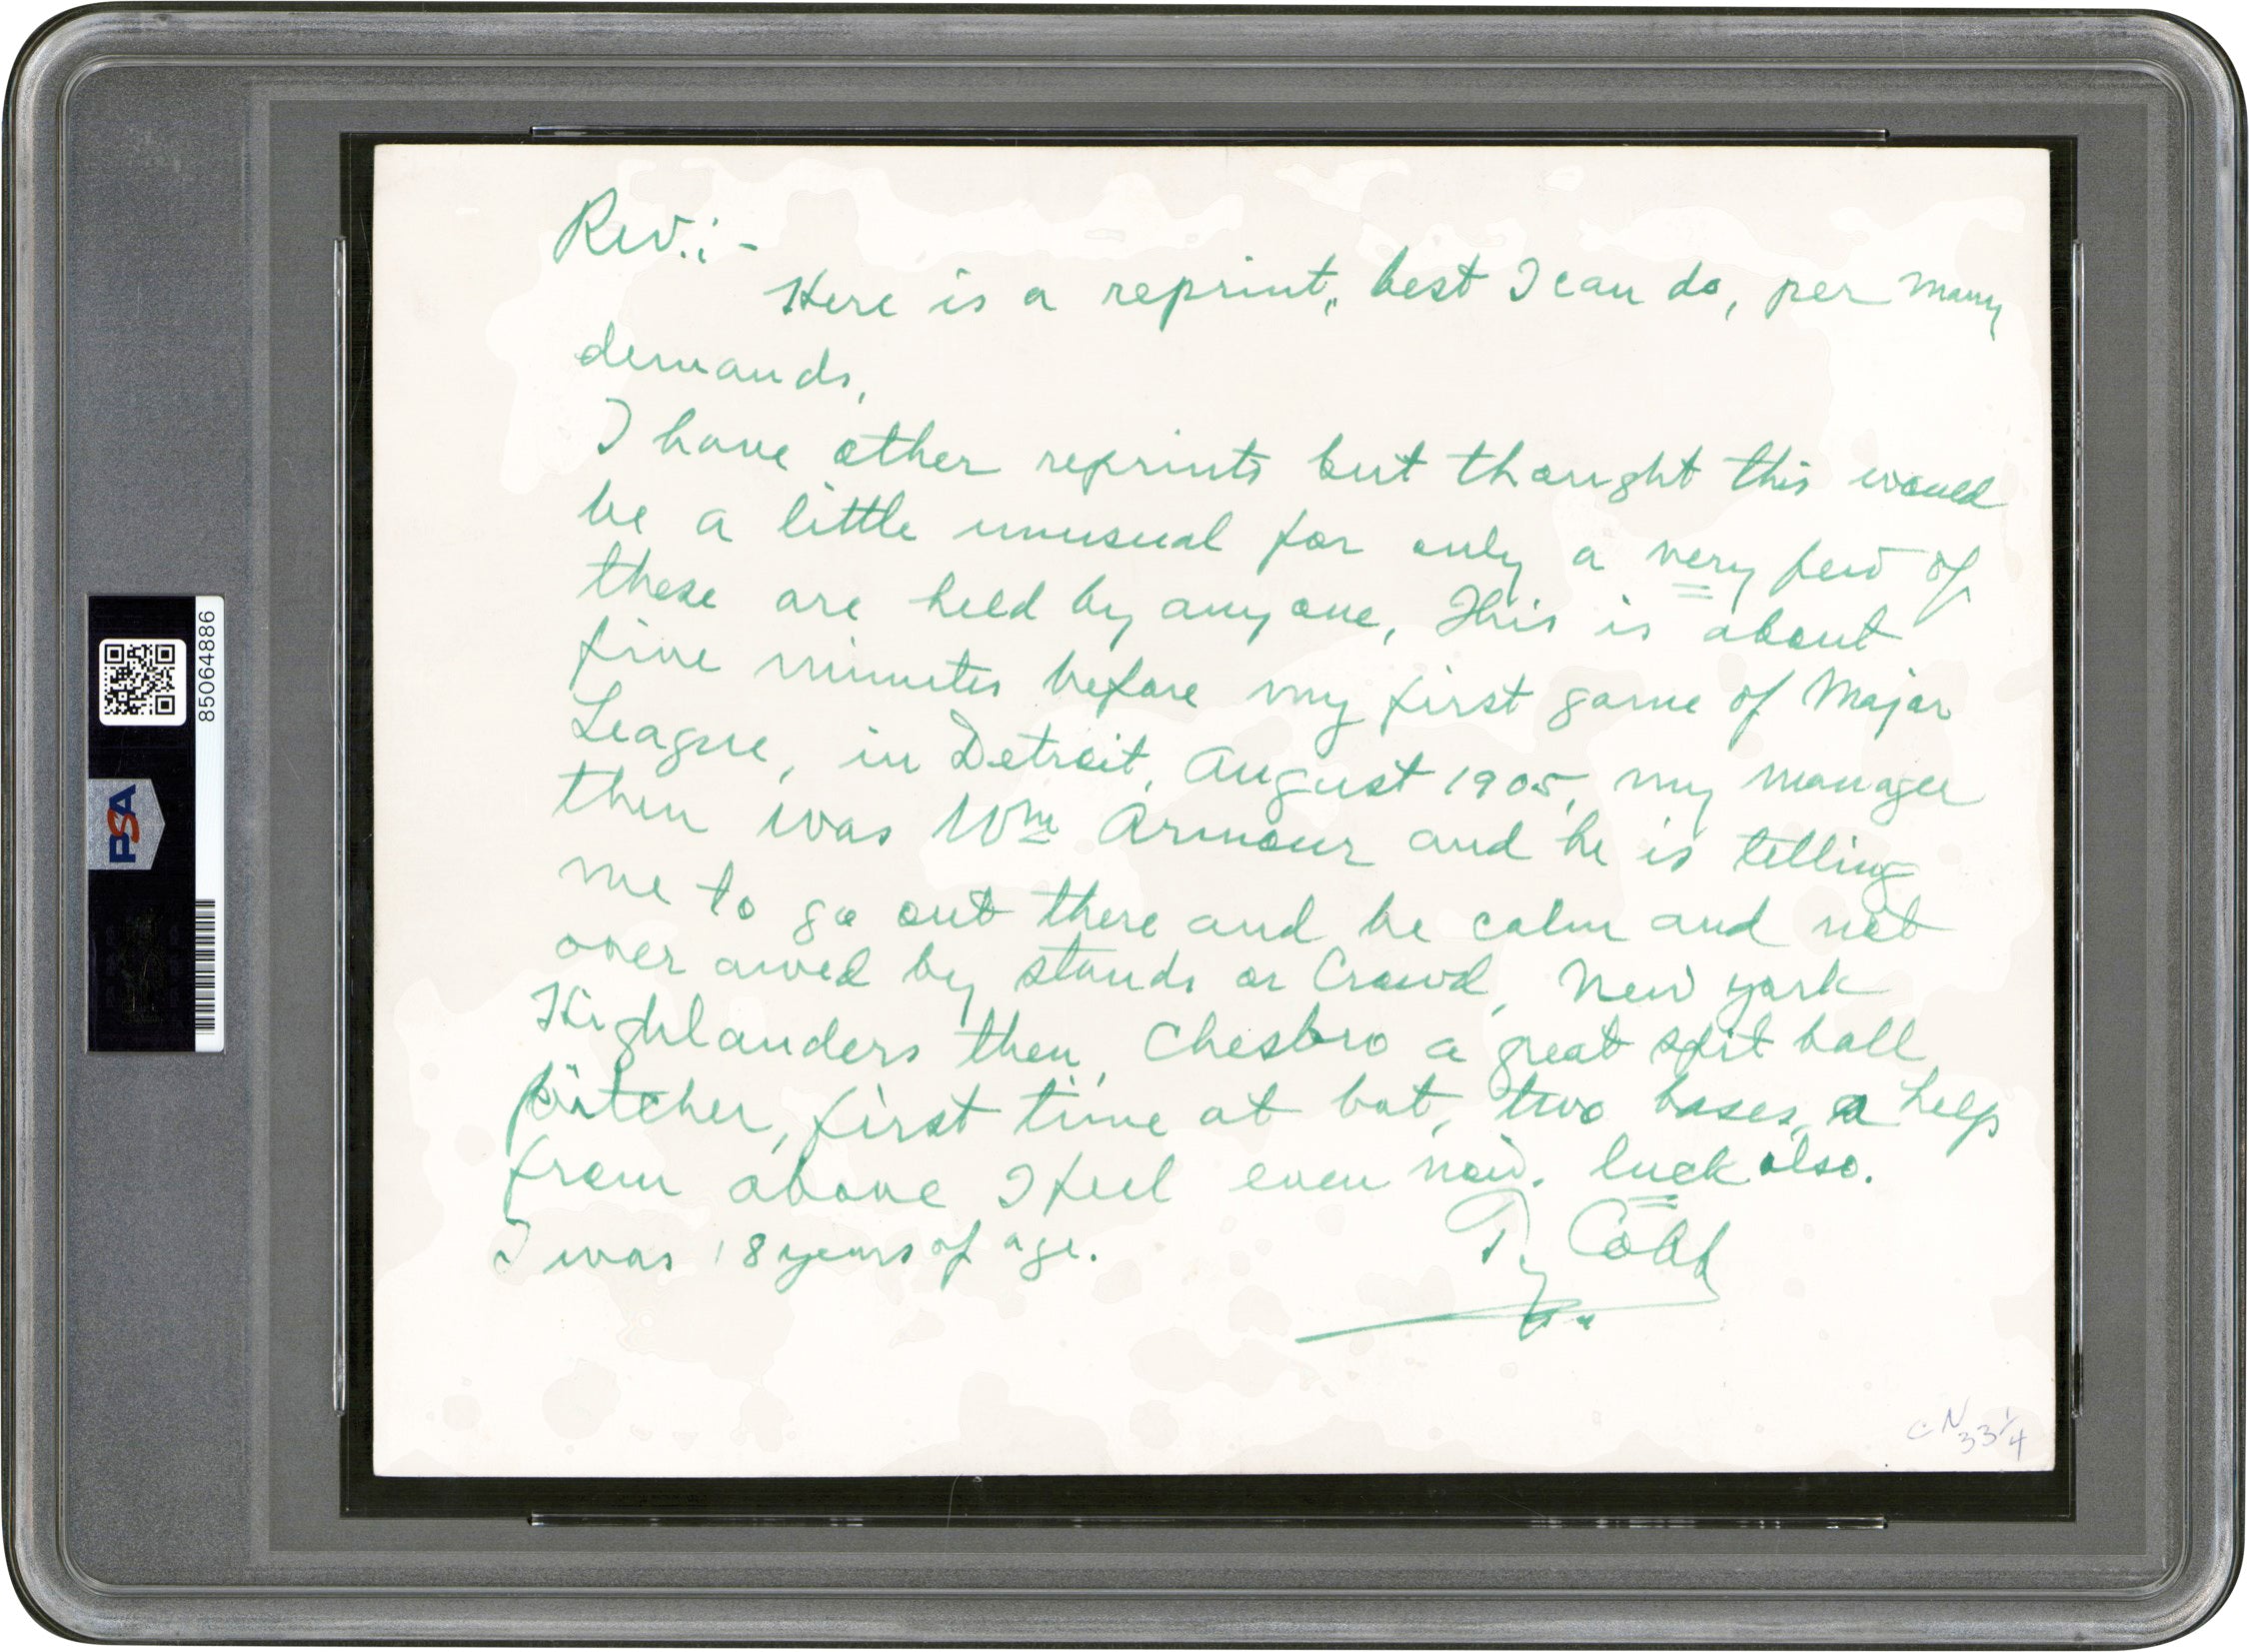 Rev.: -
Here is a reprint, best I can do, per many
demands,
I have other reprints but thought this would
be a little unusual for only a very few of
these are held by anyone, This is about
five minutes before my first game of Major
League, in Detroit, August 1905, my manager
then was Wm Armour and he is telling
me to go out there and be calm and not
over awed by stands or Crowd, New York
Highlanders then, Chesbro a great spit ball
pitcher, first time at bat, two bases, a help
from above I feel even now. luck also.
I was 18 years of age.
Ty Cobb
CN 33 1/4
85064886
PSA